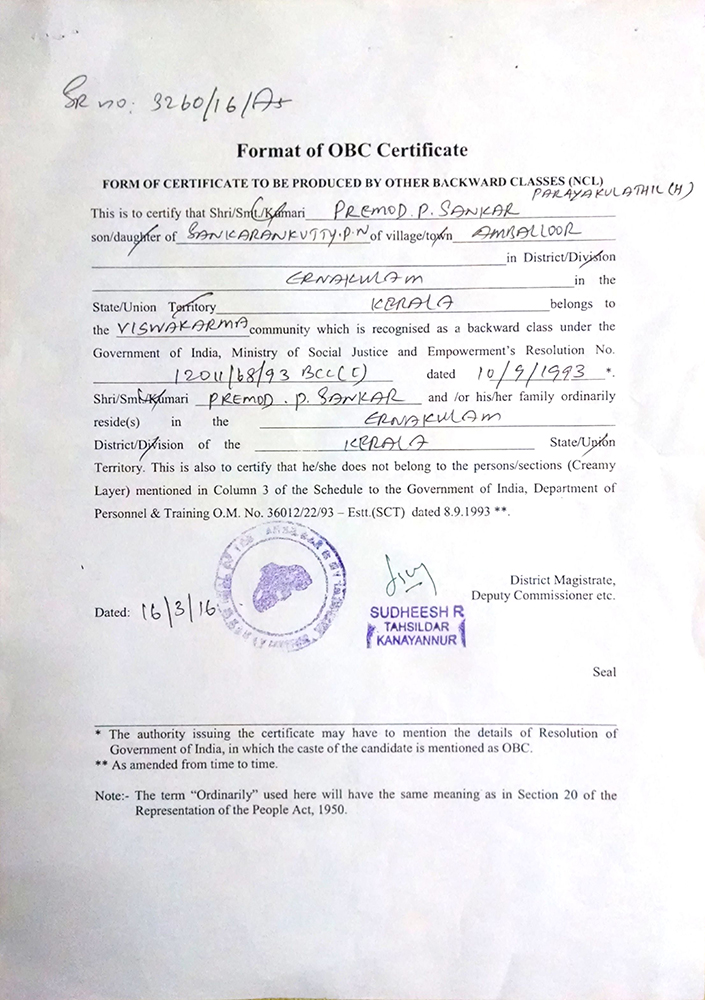 SR no: 3260/16/A5
Format of OBC Certificate
FORM OF CERTIFICATE TO BE PRODUCED BY OTHER BACKWARD CLASSES (NCL)
PARAYAKULATHIL (H)
This is to certify that Shri/Smt./Kumari PREMOD. P. SANKAR
son/daughter of SANKARANKUTTY. P. N of village/town AMBALLOOR
in District/Division
ERNAKULAM in the
State/Union Territory KERALA belongs to
the VISWAKARMA community which is recognised as a backward class under the
Government of India, Ministry of Social Justice and Empowerment's Resolution No.
12011/68/93 BCC(C) dated 10/9/1993 *.
Shri/Smt./Kumari PREMOD. P. SANKAR and /or his/her family ordinarily
reside(s) in the ERNAKULAM
District/Division of the KERALA State/Union
Territory. This is also to certify that he/she does not belong to the persons/sections (Creamy
Layer) mentioned in Column 3 of the Schedule to the Government of India, Department of
Personnel & Training O.M. No. 36012/22/93 – Estt.(SCT) dated 8.9.1993 **.
District Magistrate,
Deputy Commissioner etc.
Dated: 16/3/16
SUDHEESH R
TAHSILDAR
KANAYANNUR
Seal
* The authority issuing the certificate may have to mention the details of Resolution of
Government of India, in which the caste of the candidate is mentioned as OBC.
** As amended from time to time.
Note:- The term “Ordinarily” used here will have the same meaning as in Section 20 of the
Representation of the People Act, 1950.